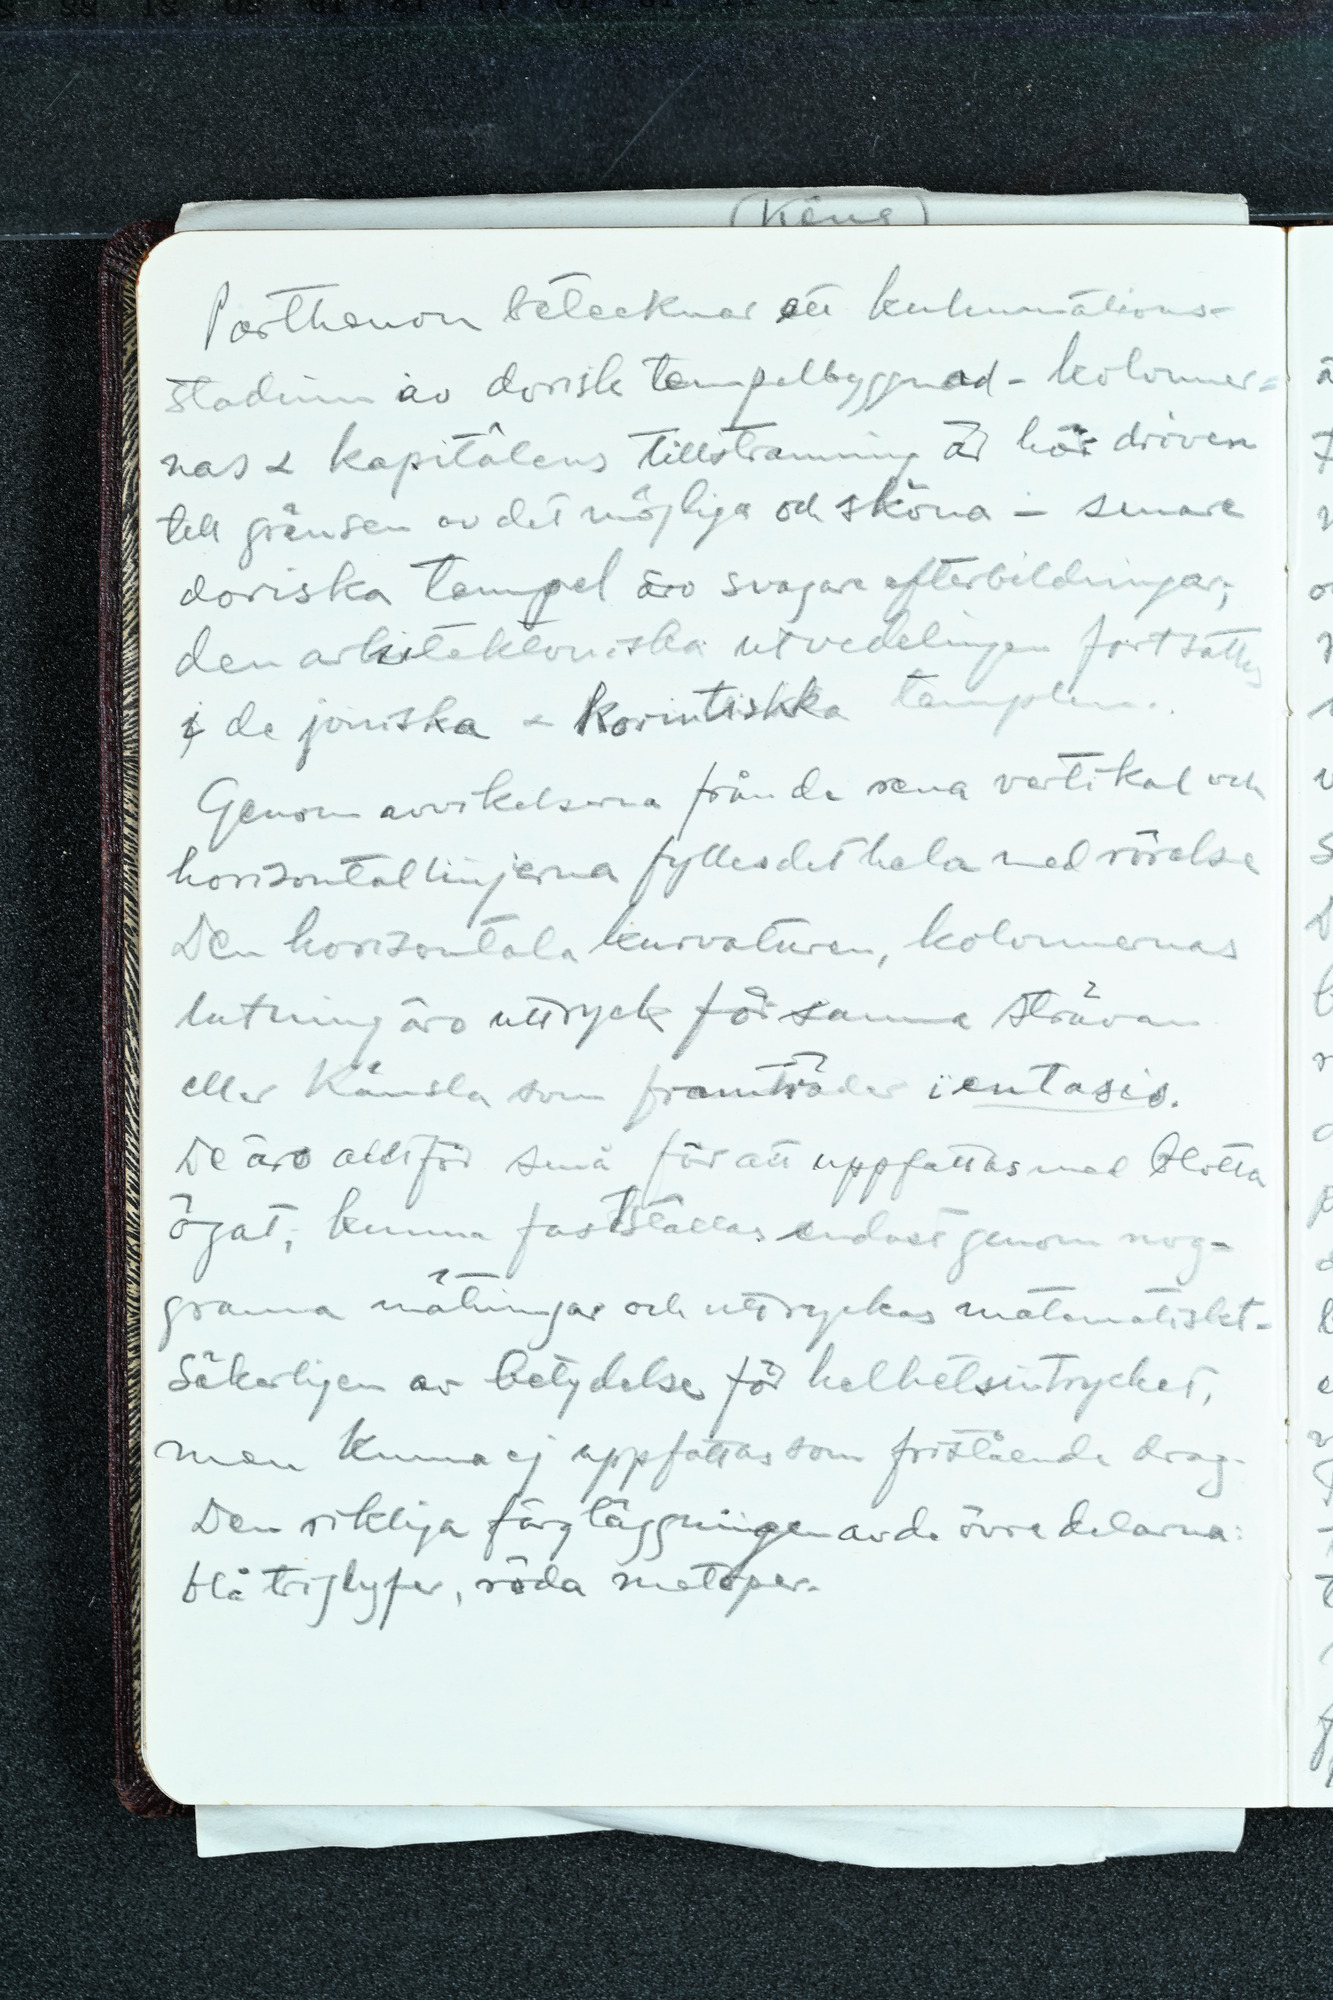 (Kéna)
Parthenon betecknar ett kulminations-
stadium av dorisk tempelbyggnad - kolonner-
nas & kapitälens tillstramning är här driven
till gränsen av det möjliga och sköna - senare
doriska tempel äro svagare efterbildningar;
den arkitektoniska utvecklingen fortsattes
i de joniska & korintiska templen.
Genom avvikelserna från de rena vertikal och
horizontallinjerna fylles det hela med rörelse
Den horizontala kurvaturen, kolonnernas
lutning äro uttryck för samma strävan
eller känsla som framträder i entasis.
De äro alltför små för att uppfattas med blotta
ögat; kunna fastställas endast genom nog-
granna mätningar och uttryckas matematiskt -
Säkerligen av betydelse för helhetsintrycket,
men kunna ej uppfattas som fristående drag.
Den rikliga färgläggningen av de övre delarna:
blå triglyfer, röda metoper.